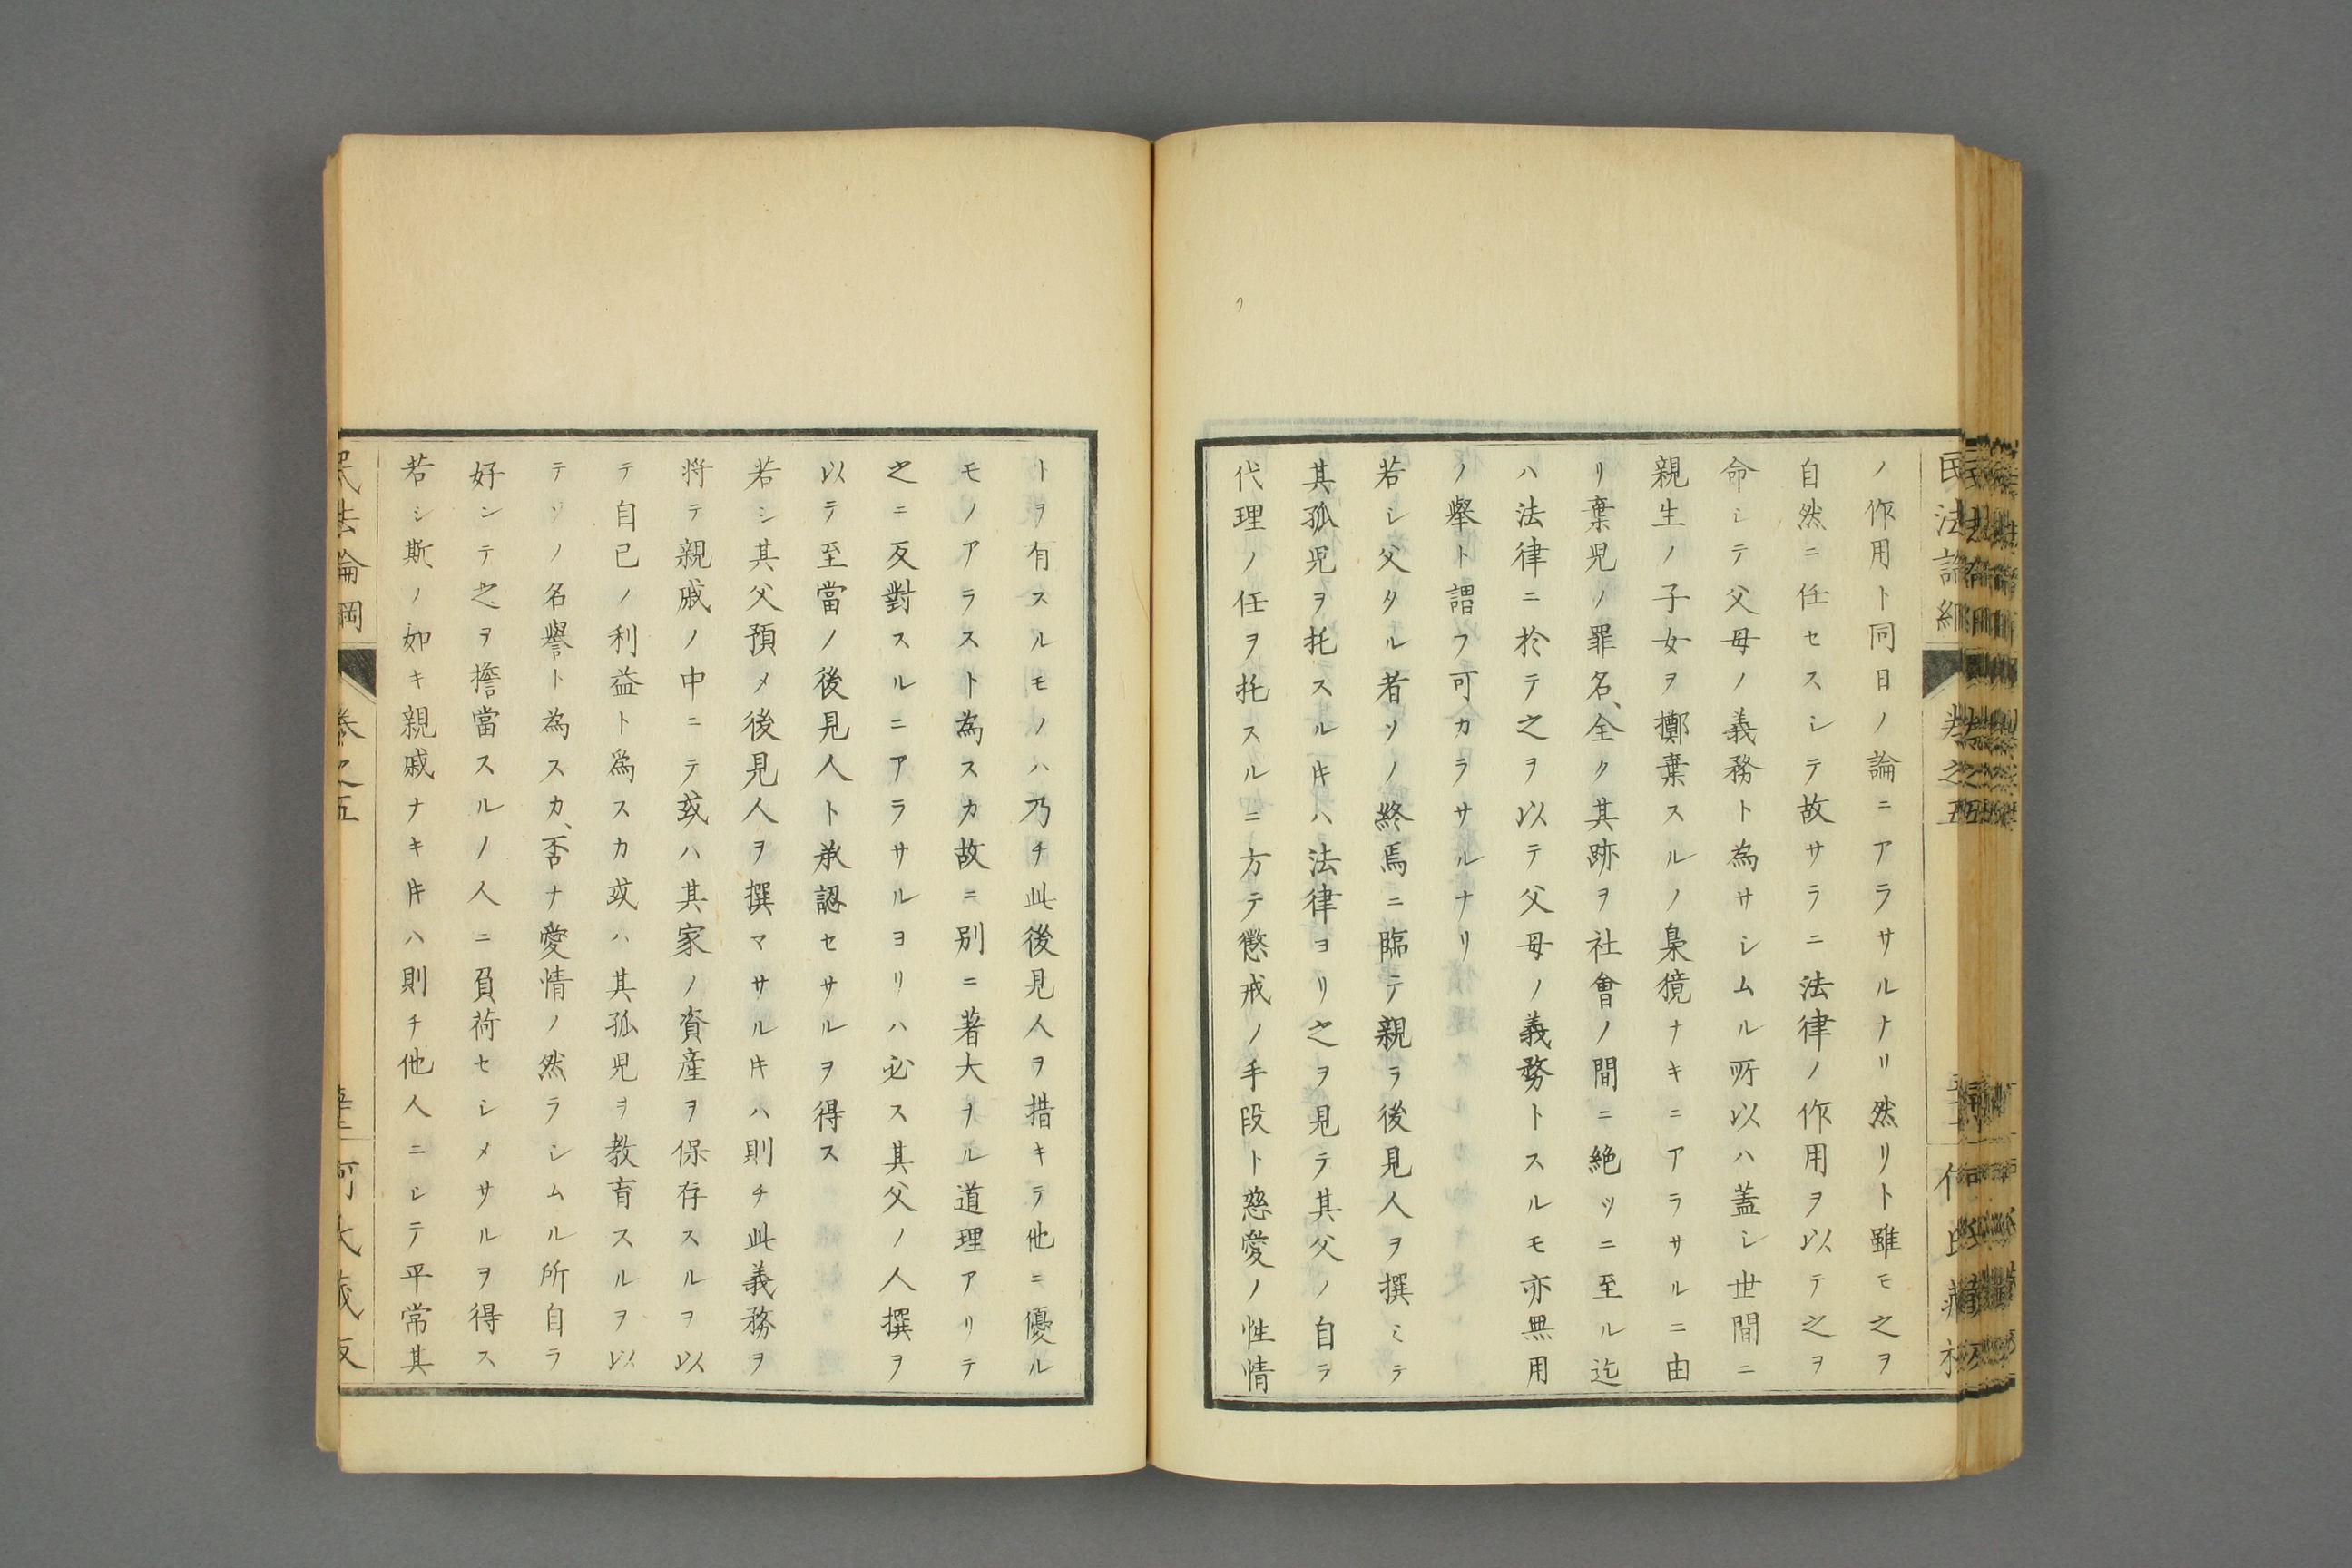 ノ作用ト同日ノ論ニアラサルナリ然リト雖モ之ヲ
自然ニ任セスシテ故サラニ法律ノ作用ヲ以テ之ヲ
命シテ父母ノ義務ト為サシムル所以ハ蓋シ世間ニ
親生ノ子女ヲ擲棄スルノ梟獍ナキニアラサルニ由
リ棄児ノ罪名、全ク其跡ヲ社會ノ間ニ絶ツニ至ル迄
ハ法律ニ於テ之ヲ以テ父母ノ義務トスルモ亦無用
ノ擧ト謂フ可カラサルナリ
若シ父タル者ソノ終焉ニ臨テ親ラ後見人ヲ撰ミテ
其孤児ヲ托スル𪜈ハ法律ヨリ之ヲ見テ其父ノ自ラ
代理ノ任ヲ托スルニ方テ懲戒ノ手段ト慈愛ノ性情
トヲ有スルモノハ乃チ此後見人ヲ措キテ他ニ優ル
モノアラスト為スカ故ニ別ニ著大ナル道理アリテ
之ニ反對スルニアラサルヨリハ必ス其父ノ人撰ヲ
以テ至當ノ後見人ト承認セサルヲ得ス
若シ其父預メ後見人ヲ撰マサル𪜈ハ則チ此義務ヲ
将テ親戚ノ中ニテ或ハ其家ノ資産ヲ保存スルヲ以
テ自己ノ利益ト為スカ或ハ其孤児ヲ教育スルヲ以
テソノ名譽ト為スカ、否ナ愛情ノ然ラシムル所自ラ
好ンテ之ヲ擔當スルノ人ニ負荷セシメサルヲ得ス
若シ斯ノ如キ親戚ナキ𪜈ハ則チ他人ニシテ平常其
民法論綱
巻之五